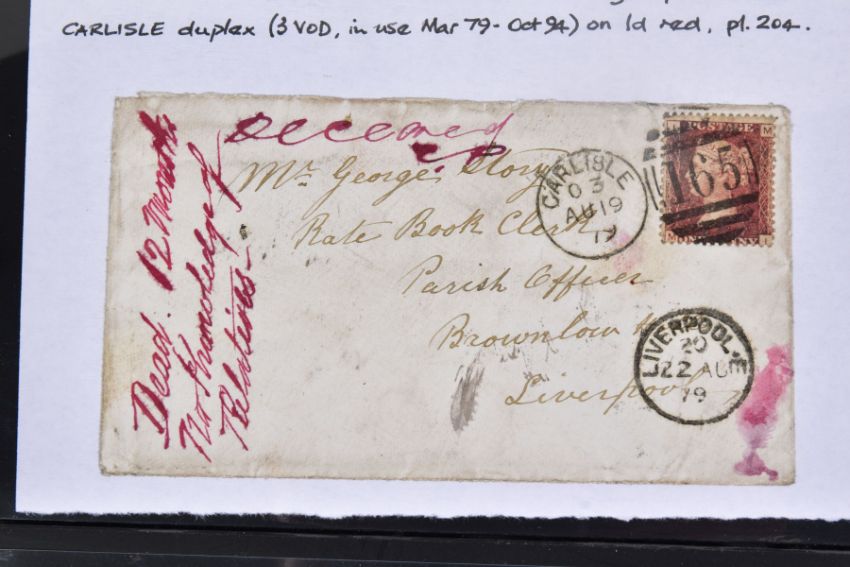 CARLISLE duplex (3 VOD, in use Mar 79 - Oct 94) on 1d red, pl. 204.
Deceased
Dead. 12 Months
No Knowledge of
Relatives -
Mr. George Story
Rate Book Clerk
Parish Offices
Brownlow
Liverpool
CARLISLE
03
AU 19
79
165
LIVERPOOL.E
20
22 AU
79